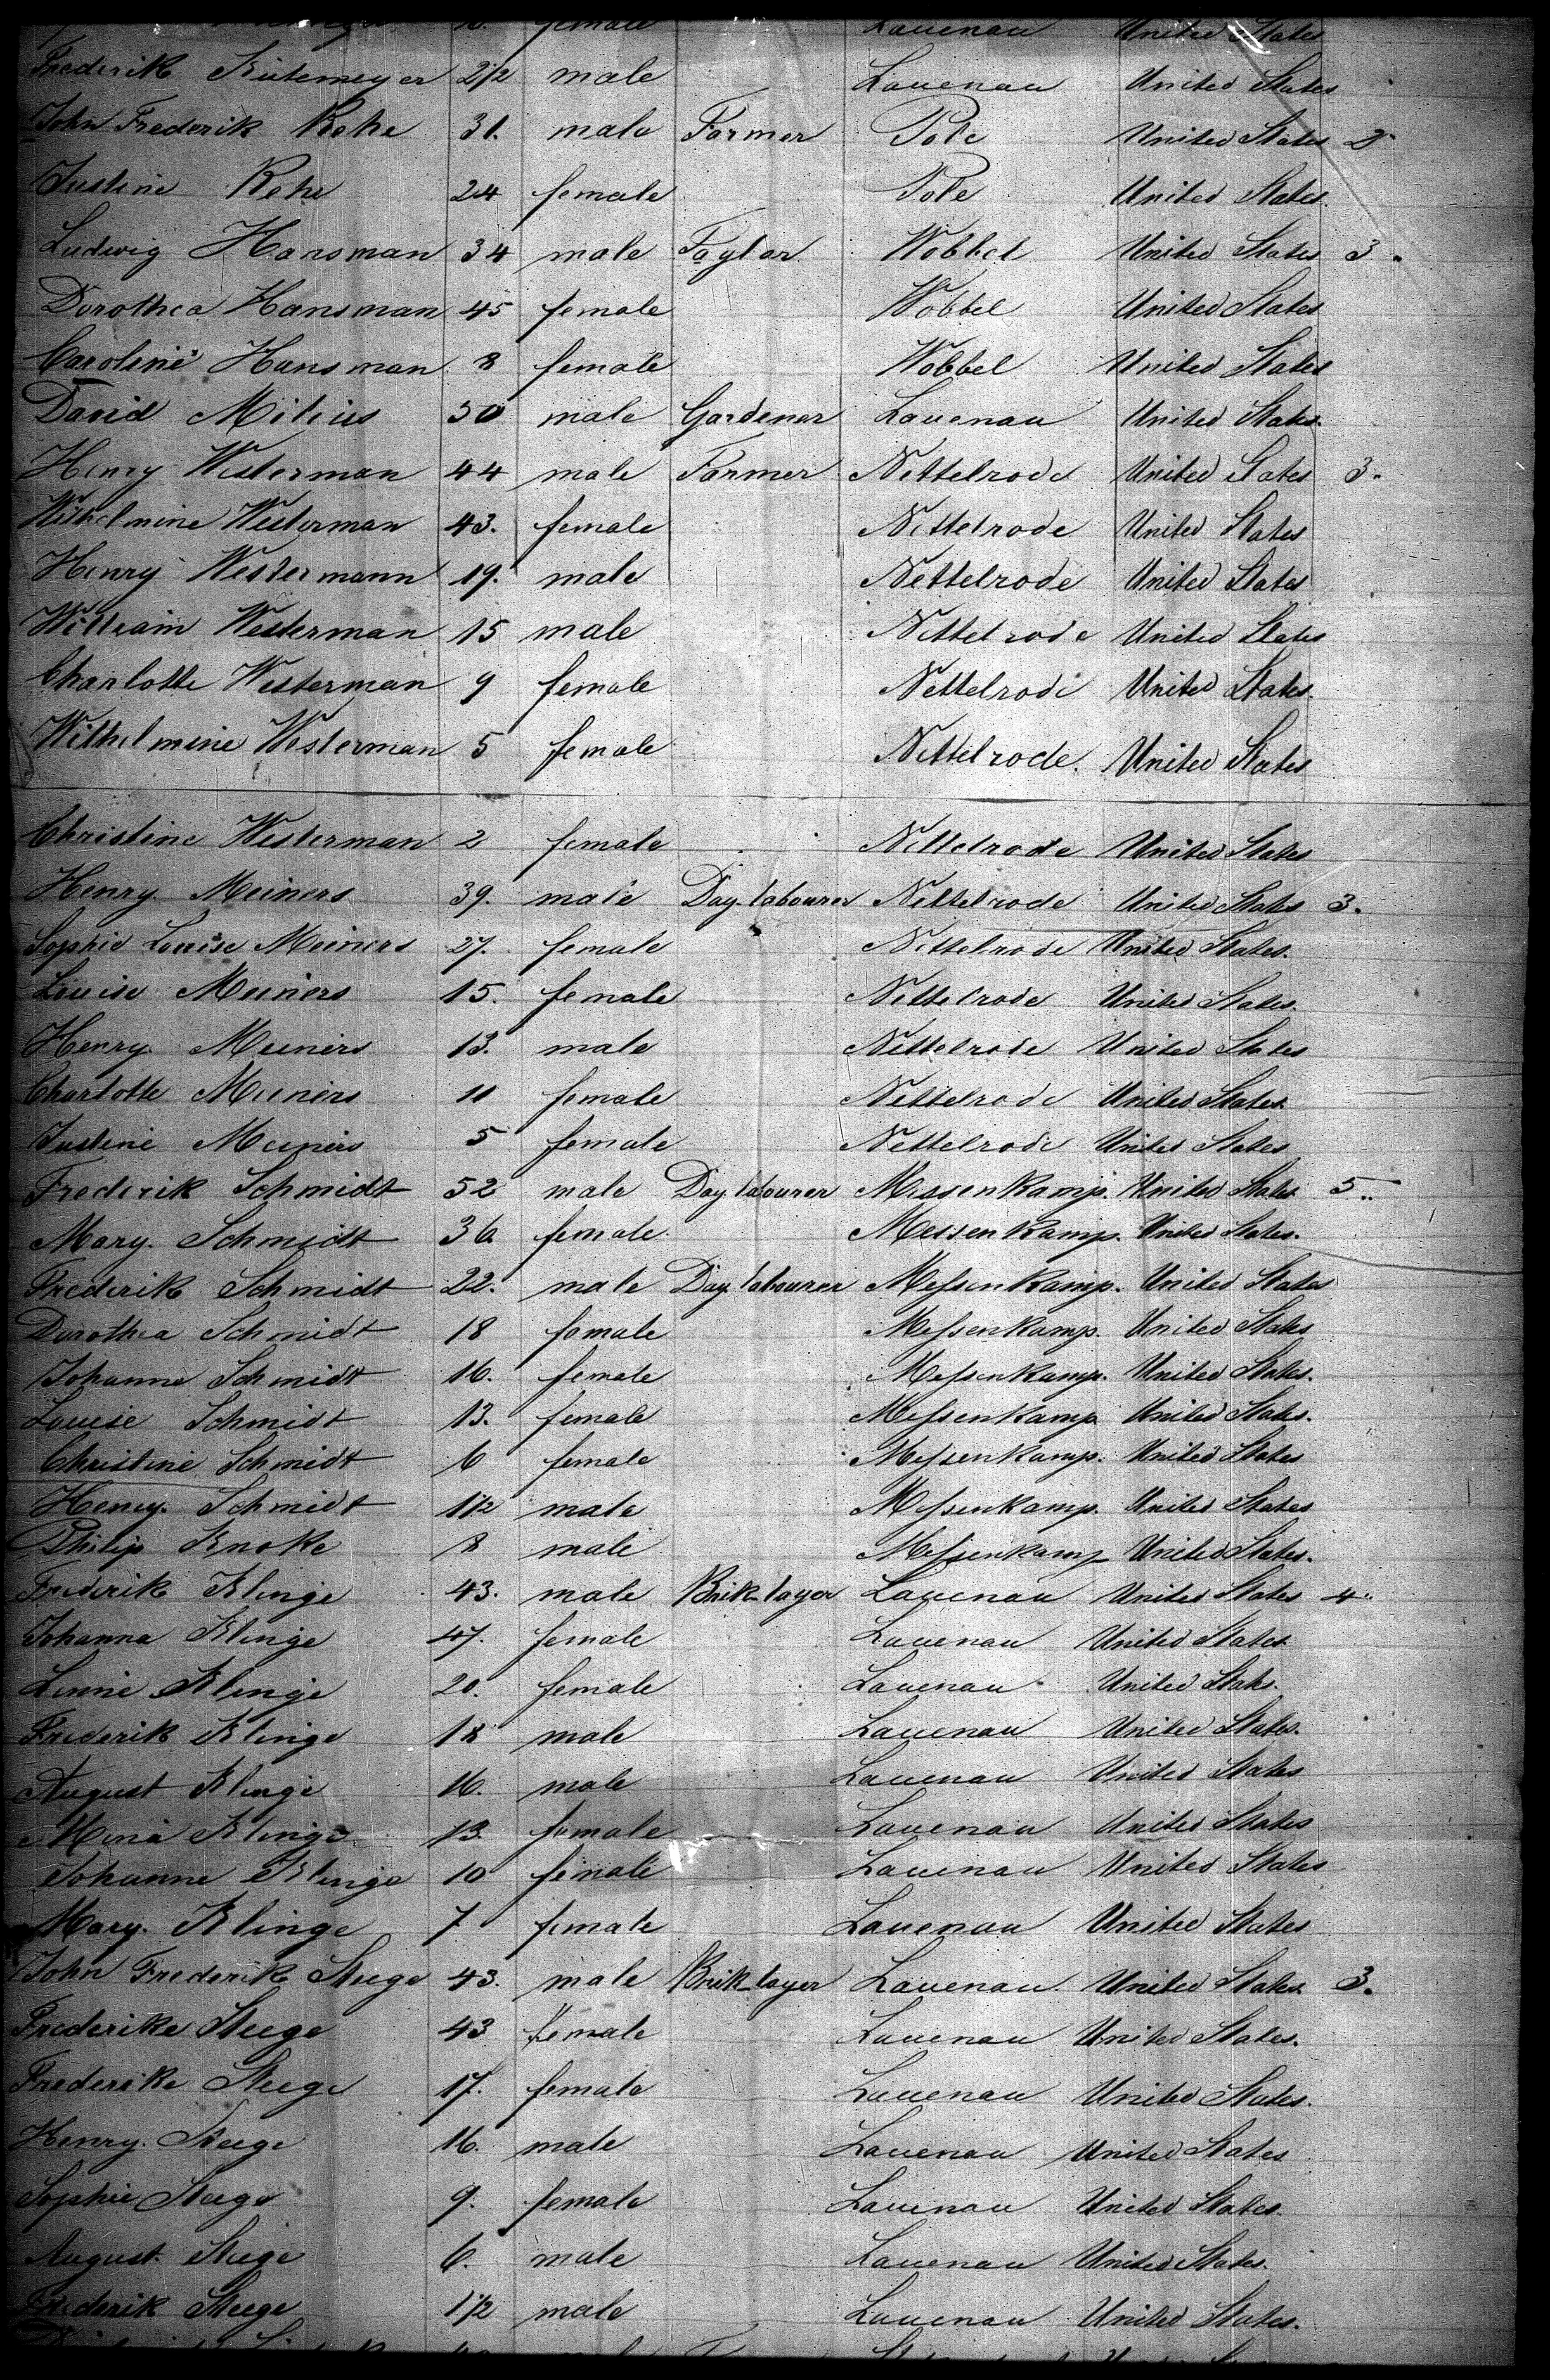 female Lauenau United States
Frederik Kütemeyer 2 1/2 male Lauenau United States
John Frederik Rehe 31. male Farmer Pole United States 2"
Justine Rehe 24 female Pole United States.
Ludwig Hansman 34 male Taylor Wobbel United States 3"
Dorothea Hansman 45 female Wobbel United States
Caroline Hansman 8 female Wobbel United States
David Milius 50 male Gardener Lauenau United States.
Henry Westerman 44 male Farmer Nettelrode United States 3"
Wilhelmine Westerman 43. female Nettelrode United States
Henry Westermann 19. male Nettelrode United States
William Westerman 15 male Nettelrode United States
Charlotte Westerman 9 female Nettelrode United States.
Wilhelmine Westerman 5 female Nettelrode. United States
Christine Westerman 2 female Nettelrode United States
Henry Meiners 39. male Day-labourer Nettelrode United States 3.
Sophie Louise Meiners 27. female Nettelrode United States.
Louise Meiners 15. female Nettelrode United States.
Henry Meiners 13. male Nettelrode United States
Charlotte Meiners 11 female Nettelrode United States
Justine Meiners 5 female Nettelrode United States
Frederik Schmidt 52 male Day labourer Messenkamp. United States 5"
Mary Schmidt 36 female Messenkamp. United States.
Frederik Schmidt 22. male Day labourer Messenkamp. United States
Dorothea Schmidt 18 female Messenkamp. United States
Johanne Schmidt 16. female Messenkamp. United States.
Louise Schmidt 13. female Messenkamp United States.
Christine Schmidt 6 female Messenkamp. United States
Henry Schmidt 1 1/2 male Messenkamp. United States
Philip Knoke 8 male Messenkamp United States.
Frederik Klinge 43. male Brik-layer Lauenau United States 4"
Johanna Klinge 47. female Lauenau United States
Linnie Klinge 20. female Lauenau United States.
Frederik Klinge 18 male Lauenau United States.
August Klinge 16. male Lauenau United States
Mina Klinge 13. female Lauenau United States
Johanne Klinge 10 female Lauenau United States
Mary Klinge 7 female Lauenau United States
John Frederik Steege 43. male Brik-layer Lauenau United States. 3.
Frederike Steege 43 female Lauenau United States.
Frederike Steege 17. female Lauenau United States.
Henry. Steege 16. male Lauenau United States
Sophie Steege 9. female Lauenau United States.
August. Steege 6. male Lauenau United States.
Frederik Steege 1 1/2 male Lauenau United States.